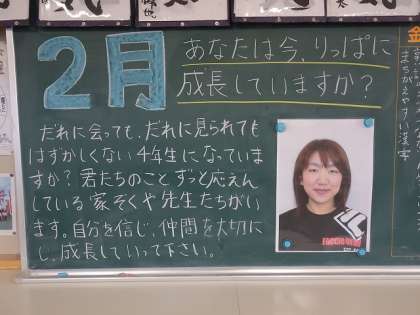 2月
あなたは今、りっぱに
成長していますか?
だれに会っても、だれに見られても
はずかしくない4年生になっていま
すか?君たちのこと、ずっと応えん
している家ぞくや先生たちがい
ます。自分を信じ、仲間を大切に
し、成長していって下さい。
金
まちがえやすい漢字